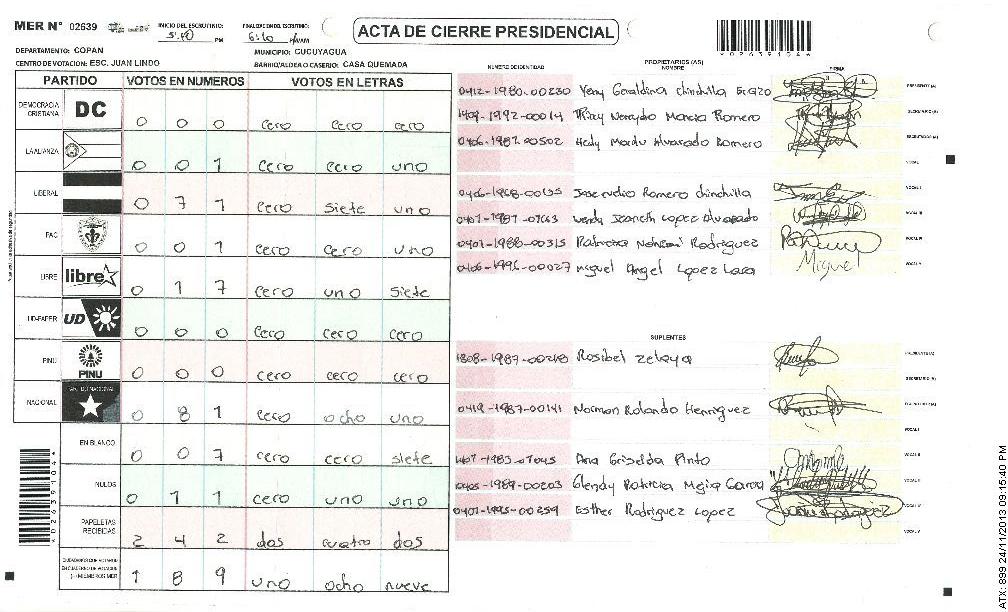 MER N° 02639
INICIO DEL ESCRUTINIO: PM
FINALIZACION DEL ESCRUTINIO: 6:10 PM/AM
ACTA DE CIERRE PRESIDENCIAL
DEPARTAMENTO: COPAN
MUNICIPIO: CUCUYAGUA
CENTRO DE VOTACION: ESC. JUAN LINDO
BARRIO/ALDEA O CASERIO: CASA QUEMADA
PARTIDO VOTOS EN NUMEROS VOTOS EN LETRAS
DEMOCRACIA CRISTIANA DC 0 0 0 cero cero cero
LA ALIANZA 0 0 1 cero cero uno
LIBERAL 0 7 1 cero siete uno
PAC 0 0 1 cero cero uno
LIBRE libre 0 1 7 cero uno siete
UD-FAPER UD 0 0 0 cero cero cero
PINU PINU 0 0 0 cero cero cero
NACIONAL 0 8 1 cero ocho uno
EN BLANCO 0 0 7 cero cero siete
NULOS 0 1 1 cero uno uno
PAPELETAS RECIBIDAS 2 4 2 dos cuatro dos
1 8 9 uno ocho nueve
NUMERO DE IDENTIDAD PROPIETARIOS (AS) NOMBRE FIRMA
0412-1980-00230 Yeny Geraldina Chinchilla PRESIDENTE (A)
1409-1992-00014 Nereyda Marcia Romero SECRETARIO (A)
Hedy Alvarado Romero ESCRUTADOR (A)
VOCAL I
Romero Chinchilla VOCAL II
Jeaneth Lopez Alvarado VOCAL III
0401-1988-00315 Patricia Rodriguez VOCAL IV
00027 Miguel Angel Lopez Lara Miguel VOCAL V
SUPLENTES
Rosibel Zelaya PRESIDENTE (A)
SECRETARIO (A)
0419-1987-00141 Norman Rolando Henriquez ESCRUTADOR (A)
VOCAL I
Ana Griselda Pinto VOCAL II
Glendy Patricia Mejia Garcia VOCAL III
Esther Rodriguez Lopez VOCAL IV
VOCAL V
*02639104*
*02639104*
ATX: 899 24/11/2013 09:15:40 PM